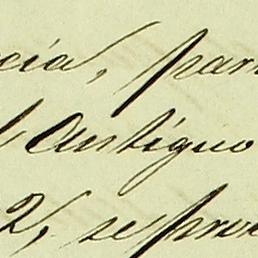 cia, par
l Antiguo
2, se pro